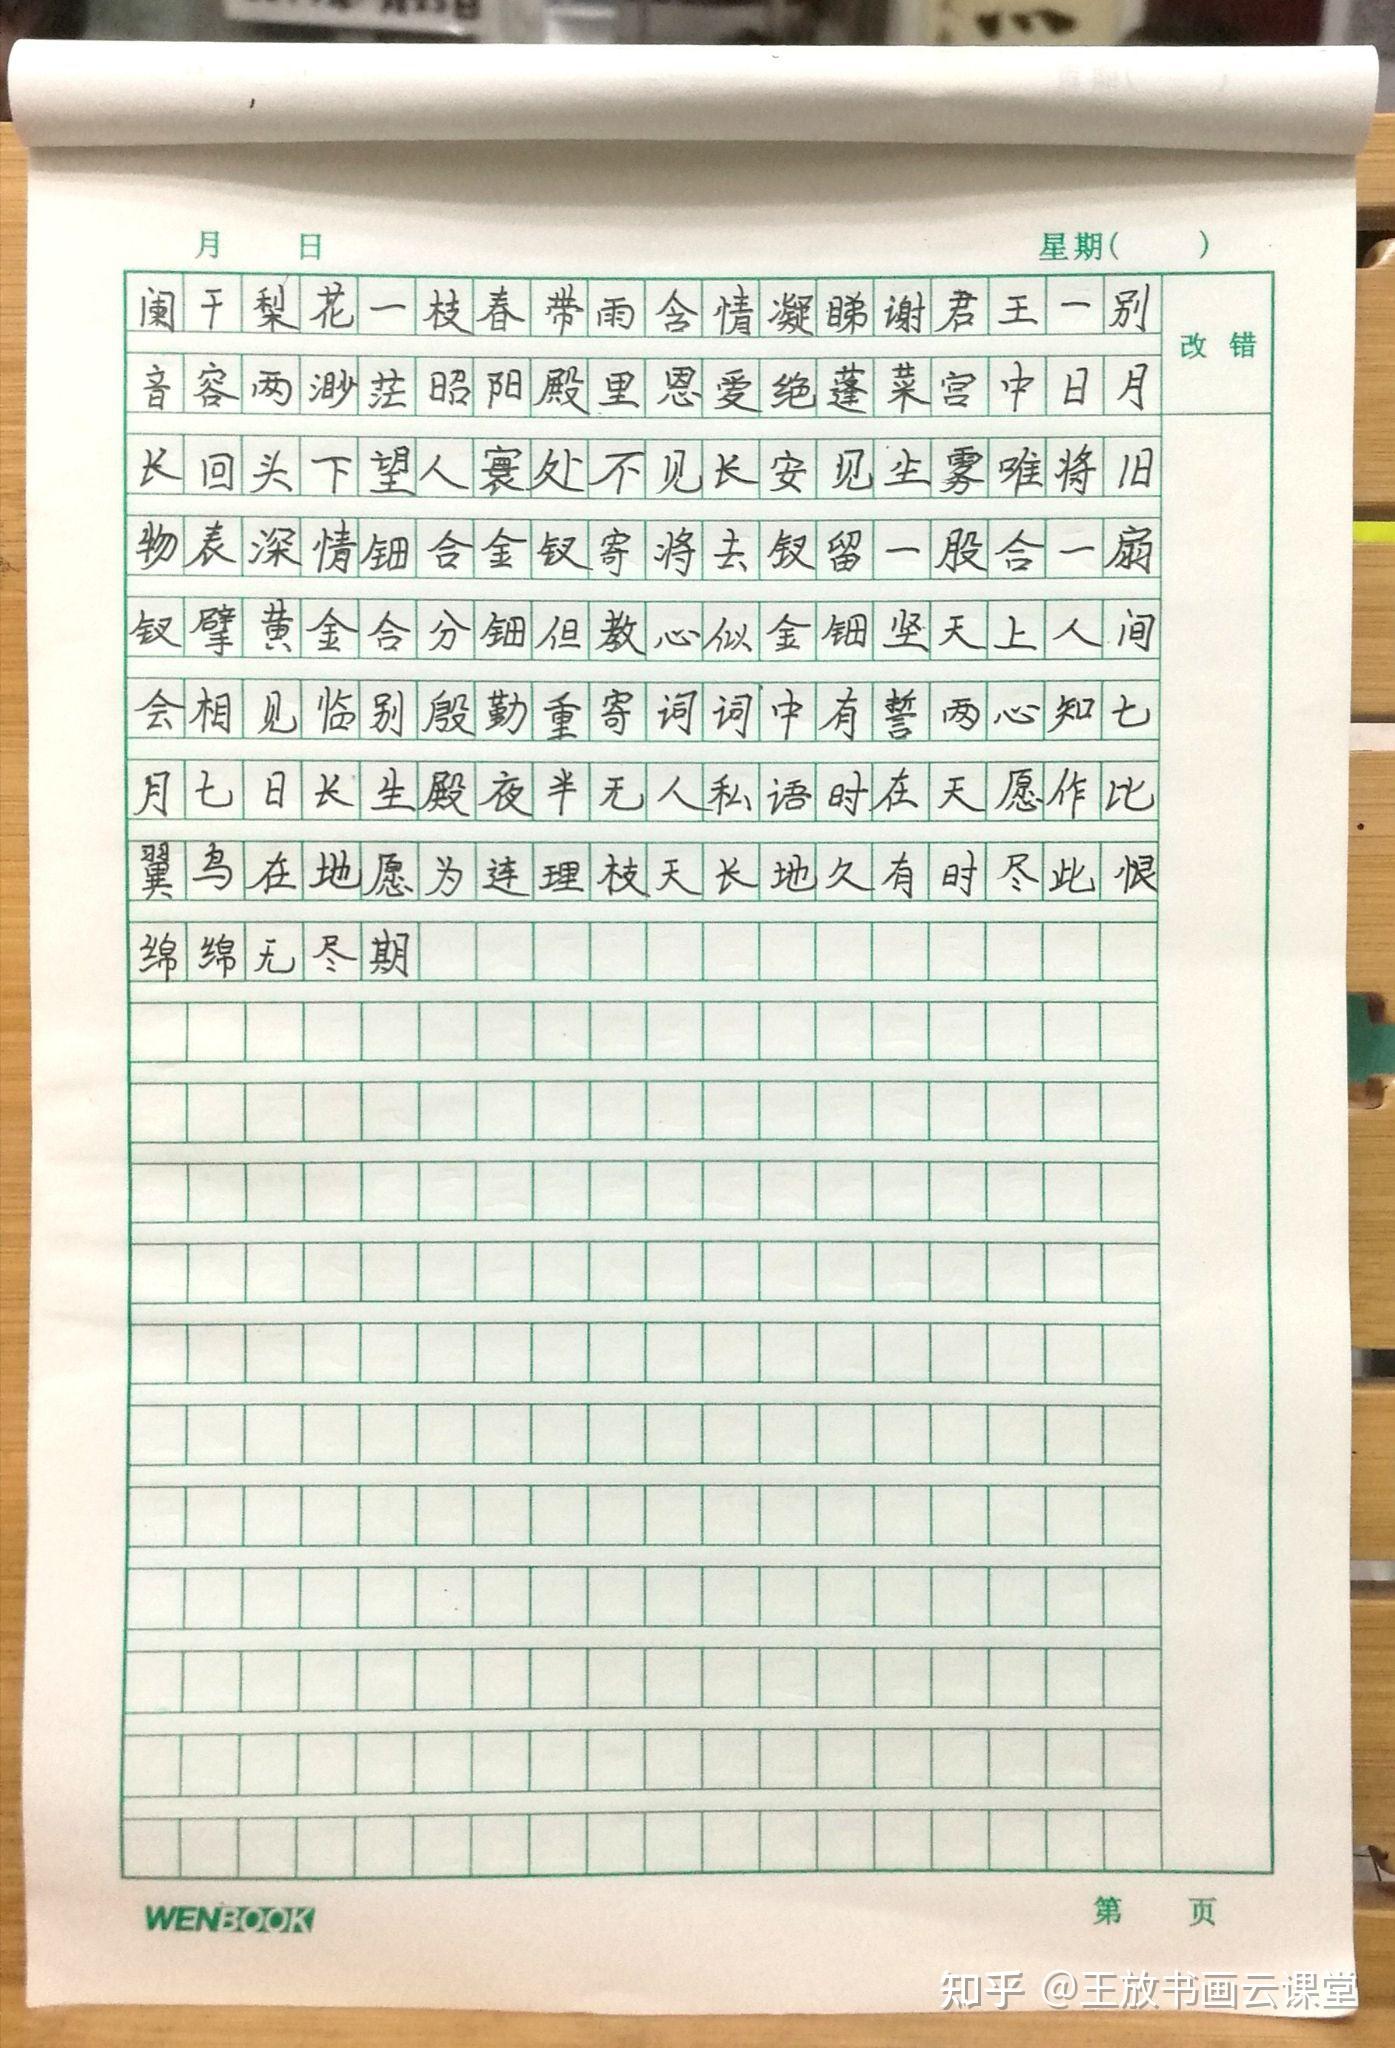 月 日 星期( )
阑干梨花一枝春带雨含情凝睇谢君王一别
改错
音容两渺茫昭阳殿里恩爱绝蓬菜宫中日月
长回头下望人寰处不见长安见尘雾唯将旧
物表深情钿合金钗寄将去钗留一股合一扇
钗擘黄金合分钿但教心似金钿坚天上人间
会相见临别殷勤重寄词词中有誓两心知七
月七日长生殿夜半无人私语时在天愿作比
翼鸟在地愿为连理枝天长地久有时尽此恨
绵绵无尽期
WENBOOK
第 页
知乎 @王放书画云课堂